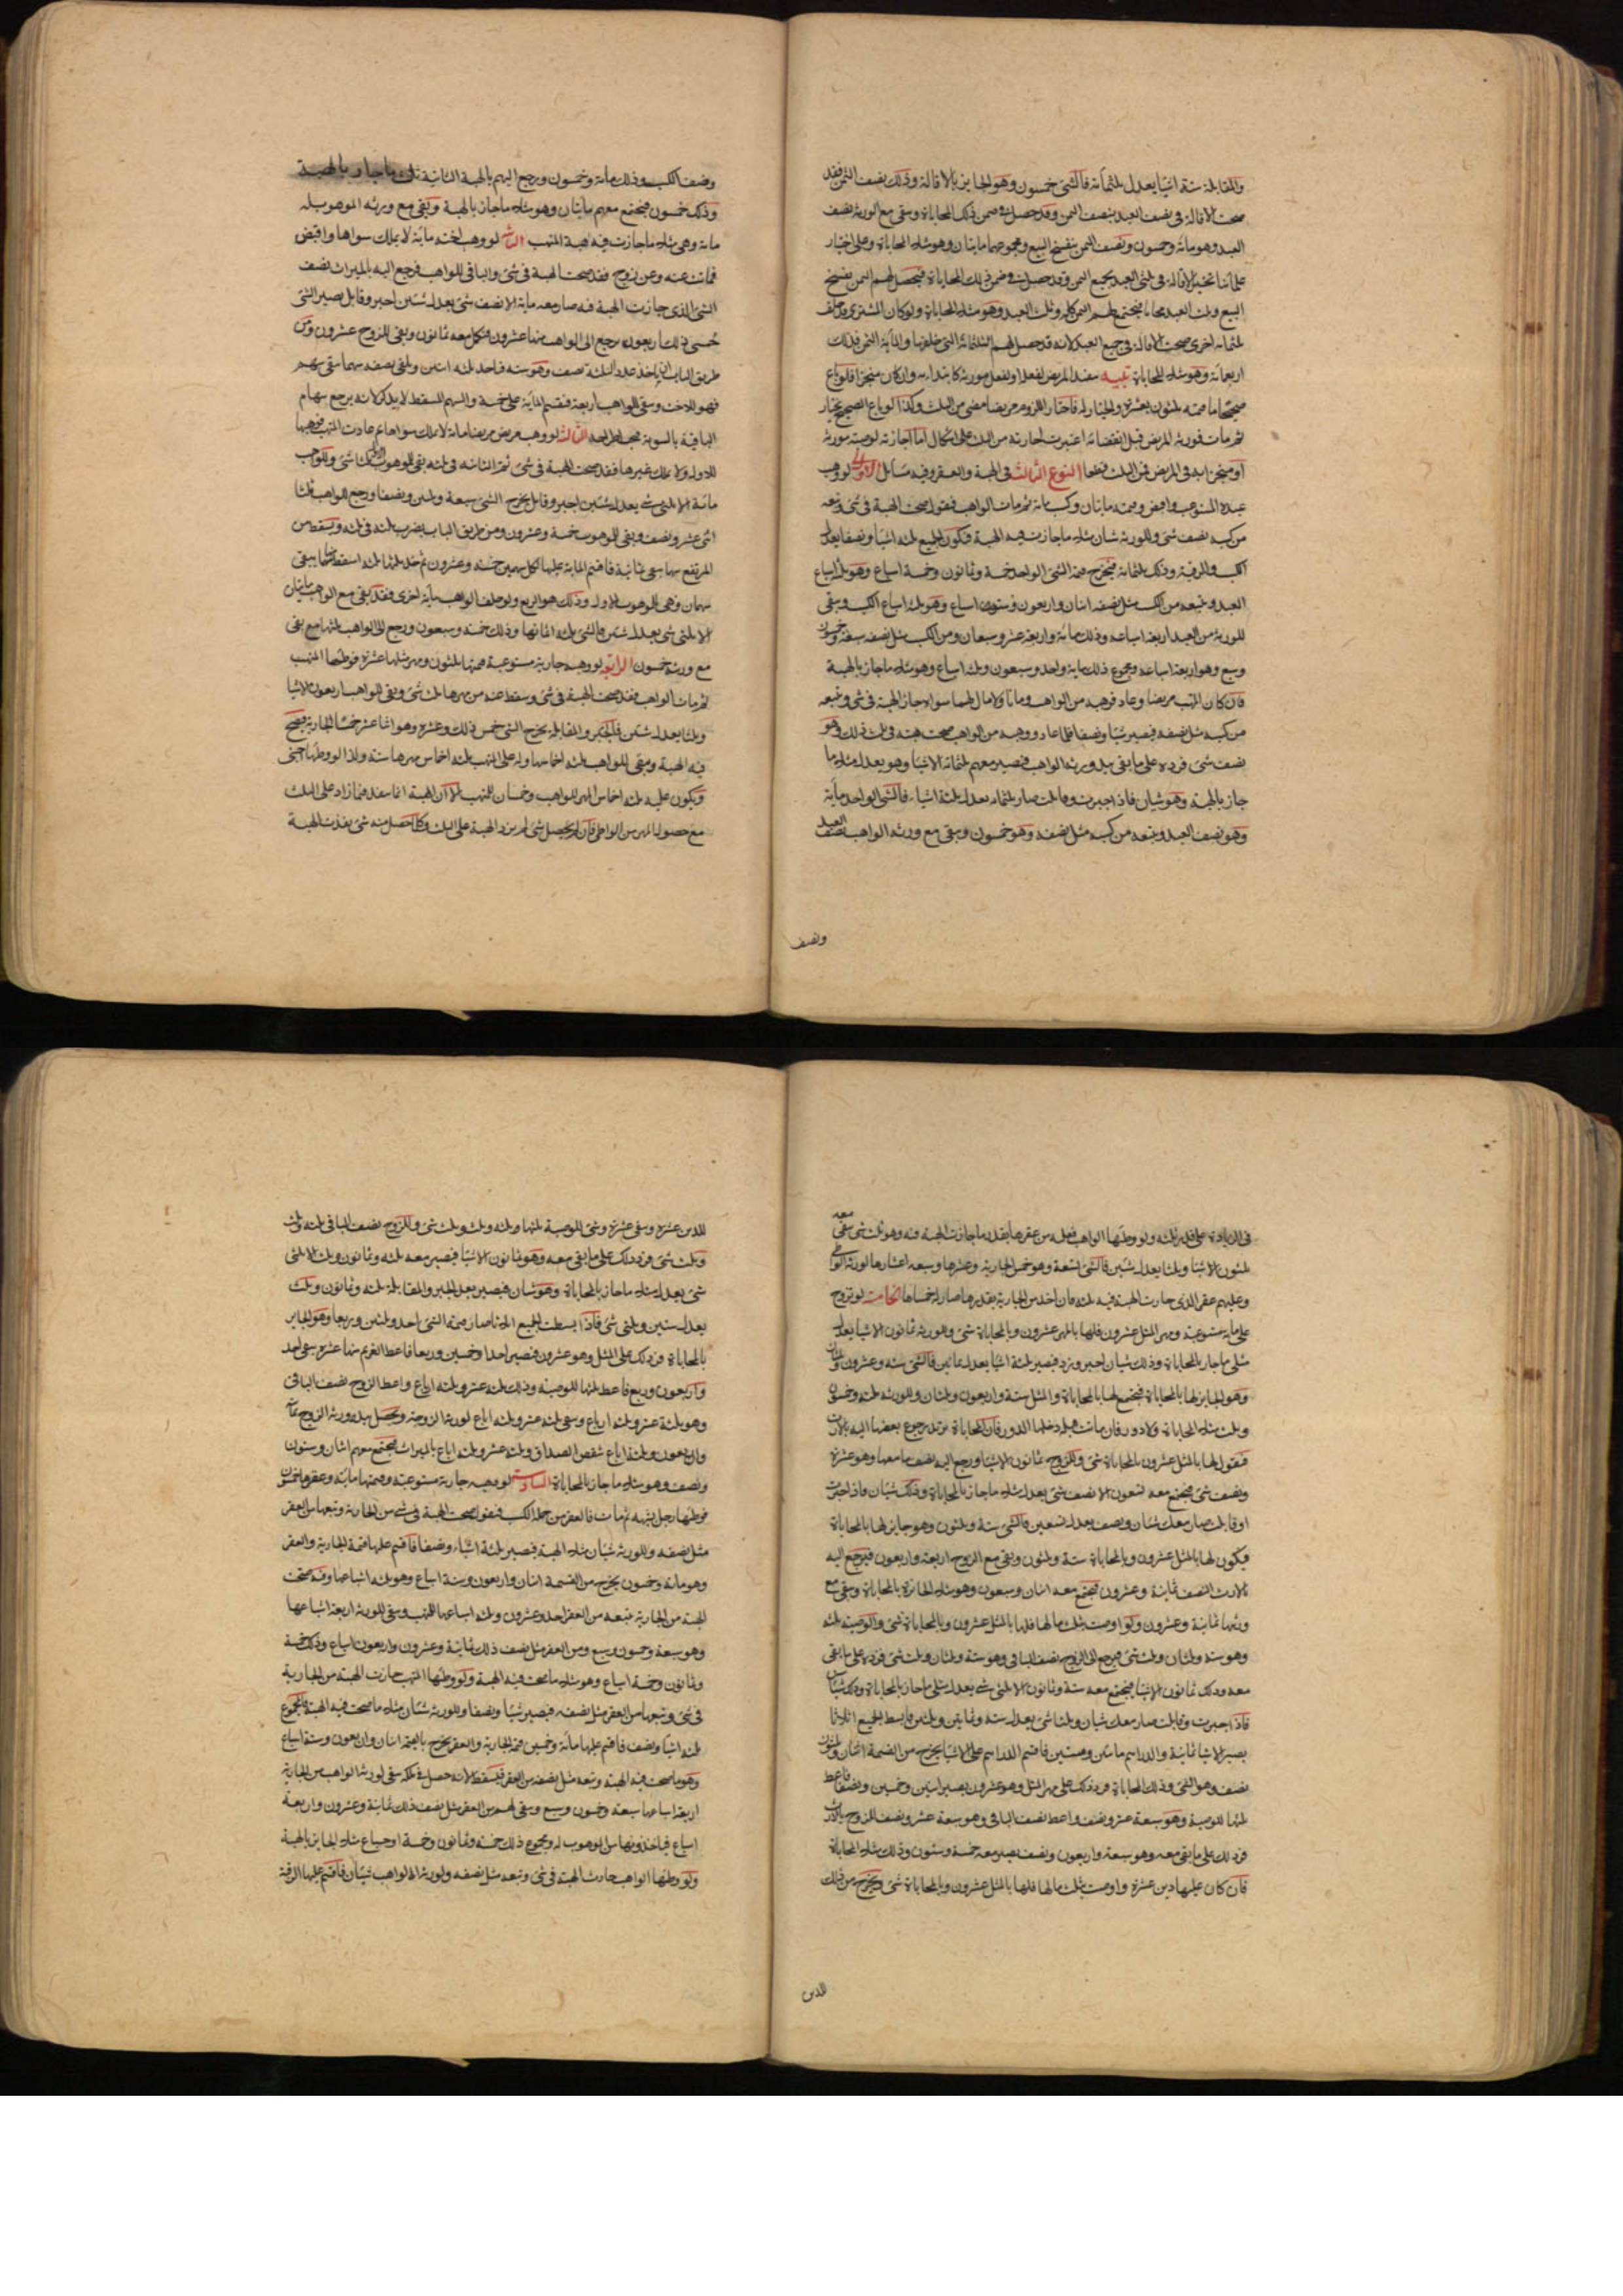 والمقابلة ستة اشيا يعدل ثلثمائة فالشئ خمسون وهو الجايز بالاقالة وذلك نصف الثمن فقد
صحت الاقالة فى نصف العبد بنصف الثمن وقد حصل فى ضمن ذلك المحاباة وبقى مع الورثة نصف
العبد وهو مائة وخمسون ونصف الثمن بفسخ البيع ومجموعهما مايتان وهو مثلا المحاباة وعلى اختيار
علمائنا تخير الاقالة فى ثلثى العبد بجميع الثمن وقد حصلت فى ضمن ذلك المحاباة فيحصل لهم الثمن بفسخ
البيع وثلث العبد محاباة فيجتمع لهم الثمن كله وثلث العبد وهو مثلا المحاباة ولو كان المشترى قد خلف
ثلثمائة اخرى صحت الاقالة فى جميع العبد لانه قد حصل لهم الثلثمائة التى خلفها والمائة الثمن فذلك
اربعمائة وهو مثلا المحاباة تنبيه
صحيحا ما قيمته ثلثون بعشرة والخيار له فاختار اللزوم مريضا مضى من الثلث وكذا لو باع الصحيح بخيار
ثم مات فورثه المريض قبل انقضائه اعتبرت اجازته من الثلث على اشكال اما اجازته لوصية مورثه
او منجزاته فى المرض فمن الثلث قطعا النوع الثالث فى الهبة والعقر وفيه مسائل الاولى لو وهب
عبده المستوعب واقبض وقيمته مايتان وكسب مائة ثم مات الواهب فنقول صحت الهبة فى شئ وتبعه
من كسبه نصف شئ وللورثة شيئان مثلا ما جازت فيه الهبة فيكون الجميع ثلثة اشيا ونصفا يعدل
الكسب والرقبة وذلك ثلثمائة فيخرج قيمة الشئ الواحد خمسة وثمانون وخمسة اسباع وهو ثلثة اسباع
العبد وتبعه من الكسب مثل نصفه اثنان واربعون وستة اسباع وهو ثلثة اسباع الكسب ويبقى
للورثة من العبد اربعة اسباعه وذلك مائة واربعة عشر وسبعان ومن الكسب مثل نصفه سبعة وخمسون
وسبع وهو اربعة اسباعه ومجموع ذلك مائة واحد وسبعون وثلثة اسباع وهو مثلا ما جاز بالهبة
فان كان المتهب مريضا وعاد فوهبه من الواهب وماتا ولا مال لهما سواه جاز الهبة فى شئ وتبعه
من كسبه مثل نصفه فيصير شيئا ونصفا فلما عاد ووهبه من الواهب صحت هبته فى ثلث ذلك وهو
نصف شئ فرده على ما بقى بيد ورثة الواهب فيصير معهم ثلثمائة الا شيئا وهو يعدل مثلى ما
جاز بالهبة وهو شيئان فاذا جبرت وقابلت صار ثلثمائة يعدل ثلثة اشياء فالشئ الواحد مائة
وهو نصف العبد وتبعه من كسبه مثل نصفه وهو خمسون ويبقى مع ورثة الواهب نصف العبد
ونصف
ونصف الكسب وذلك مائة وخمسون ورجع اليهم بالهبة الثانية ثلث ما جاز بالهبة
وذلك خمسون فيجتمع معهم مايتان وهو مثلا ما جاز بالهبة ويبقى مع ورثة الموهوب له
مائة وهى مثلا ما جازت فيه هبة المتهب الثانية لو وهب لاخته مائة لا يملك سواها واقبض
فماتت عنه وعن زوج فقد صحت الهبة فى شئ والباقى للواهب ورجع اليه بالميراث نصف
الشئ الذى جازت الهبة فيه صار معه مائة الا نصف شئ يعدل شيئين اجبر وقابل يصير الشئ
خمسى ذلك اربعون يرجع الى الواهب منها عشرون فكمل معه ثمانون وبقى للزوج عشرون ومن
طريق الباب ان ياخذ عدد الثلثة نصف وهو ستة فياخذ ثلثه اثنين ويلقى نصفه سهما يبقى سهم
فهو للاخت ويبقى للواهب اربعة فيقسم المائة على خمسة والسهم المسقط لا يذكر لانه يرجع سهام
الباقية بالسوية فيجب اطراحه الثالثة لو وهب مريض مريضا مائة لا يملك سواها ثم عادت المتهب فوهبها
للاول ولا يملك غيرها فقد صحت الهبة فى شئ ثم الثانية فى ثلثه بقى للموهوب الاول ثلثا شئ وللواهب
مائة الا ثلثى شئ يعدل شيئين اجبر وقابل يخرج الشئ سبعة وثلثين ونصفا ورجع للواهب ثلثها
اثنى عشر ونصف وبقى للموهوب خمسة وعشرون ومن طريق الباب يضرب ثلثة فى ثلثة ويسقط من
المرتفع سهما يبقى ثمانية فاقسم المائة عليها لكل سهمين خمسة وعشرون ثم خذ ثلثها ثلثة اسقط منها سهما يبقى
سهمان وهى للموهوب الاول وذلك هو الربع ولو خلف الواهب مائة اخرى فقد بقى مع الواهب مايتان
الا ثلثى شئ يعدل شيئين فالشئ ثلثة اثمانها وذلك خمسة وسبعون ورجع الى الواهب ثلثها مع بقى
مع ورثته خمسون الرابعة لو وهب جارية مستوعبة قيمتها ثلثون ومهر مثلها عشرة فوطئها المتهب
ثم مات الواهب فقد صحت الهبة فى شئ وسقط عنه من مهرها ثلث شئ وبقى للواهب اربعون الا شيئا
وثلثا يعدل شيئين فبالجبر والمقابلة يخرج الشئ خمس ذلك وعشره وهو اثنا عشر خمسا الجارية فيصح
فيه الهبة ويبقى للواهب ثلثة اخماسها وله على المتهب ثلثة اخماس مهرها ستة ولذا لو وطئها اجنبى
ويكون عليه ثلثة اخماس المهر للواهب وخمسان للمتهب الا ان الهبة انما تنفذ فيما زاد على الثلث
مع حصول المهر من الواطى فان لم يحصل شئ لم يزد الهبة على الثلث وكلما حصل منه شئ نفذت الهبة
فى الزيادة على قدر ثلثه ولو وطئها الواهب فعليه من عقرها بقدر ما جازت الهبة فيه وهو ثلث شئ يبقى معه
ثلثون الا شيئا وثلثا يعدل شيئين فالشئ تسعة وهو خمس الجارية وعشرها وسبعة اعشارها لورثة الواطى
وعليهم عقر الذى جازت الهبة فيه ثلثة فان اخذ من الجارية بقدرها صار له خمساها الخامسة لو تزوج
على مائة مستوعبة ومهر المثل عشرون فلها بالمهر عشرون وبالمحاباة شئ وللورثة ثمانون الا شيئا يعدل
مثلى ما جاز بالمحاباة وذلك شيئان اجبر وزد فيصير ثلثة اشيا يعدل ثمانين فالشئ ستة وعشرون وثلثان
وهو الجايز لها بالمحاباة فيجتمع لها بالمحاباة والمثل ستة واربعون وثلثان وللورثة ثلثة وخمسون
وثلث مثلا المحاباة ولا دور فان ماتت قبله دخلها الدور فان المحاباة تزيد برجوع بعضها اليه بالارث
فنقول لها بالمثل عشرون وبالمحاباة شئ وللزوج ثمانون الا شيئا ورجع اليه نصف ما معها وهو عشرة
ونصف شئ فيجتمع معه تسعون الا نصف شئ يعدل مثلا ما جاز بالمحاباة وذلك شيئان فاذا جبرت
او قابلت صار معك شيئان ونصف يعدل تسعين فالشئ ستة وثلثون وهو جايز لها بالمحاباة
فيكون لها بالمثل عشرون وبالمحاباة ستة وثلثون ويبقى مع الزوج اربعة واربعون فيرجع اليه
بالارث النصف ثمانية وعشرون فيجتمع معه اثنان وسبعون وهو مثلا الجايزة بالمحاباة وبقى مع
ورثتها ثمانية وعشرون ولو اوصت بثلث مالها فلها بالمثل عشرون وبالمحاباة شئ والوصية ثلثه
وهو ستة وثلثان وثلث شئ فيرجع الى الزوج نصف الباقى وهو ستة وثلثان وثلث شئ فرده على ما بقى
معه وذلك ثمانون الا شيئا فيجتمع معه ستة وثمانون الا ثلثى شئ يعدل مثلى ما جاز بالمحاباة وذلك شيئان
فاذا جبرت وقابلت صار معك شيئان وثلثا شئ يعدل ستة وثمانين وثلثين فابسط الجميع اثلاثا
يصير الاشيا ثمانية والدراهم مايتين وستين فاقسم الدراهم على الاشيا يخرج من القسمة اثنان وثلثون
ونصف وهو الشئ وذلك المحاباة فرد ذلك على مهر المثل وهو عشرون يصير اثنين وخمسين ونصفا فاعط
ثلثها للوصية وهو سبعة عشر ونصف واعط نصف الباقى وهو سبعة عشر ونصف للزوج بالارث
فرد ذلك على ما بقى معه وهو سبعة واربعون ونصف يصير معه خمسة وستون وذلك مثلا المحاباة
فان كان عليها دين عشرة واوصت بثلث مالها فلها بالمثل عشرون وبالمحاباة شئ ويخرج من ذلك
الدين
للدين عشرة ويبقى عشرة وشئ للوصية ثلثها وثلثة وثلث وثلث شئ وللزوج نصف الباقى ثلثة وثلث
وثلث شئ فرد ذلك على ما بقى معه وهو ثمانون الا شيئا فيصير معه ثلثة وثمانون وثلث الا ثلثى
شئ يعدل مثلا ما جاز بالمحاباة وهو شيئان فيصير بعد الجبر والمقابلة ثلثة وثمانون وثلث
يعدل شيئين وثلثى شئ فاذا بسطت الجميع اثلاثا صار قيمة الشئ احد وثلثين وربعا وهو الجايز
بالمحاباة فزد ذلك على المثل وهو عشرون فيصير احدا وخمسين وربعا فاعط الغريم منها عشرة يبقى احد
واربعون وربع فاعط ثلثها للوصية وذلك ثلثة عشر وثلثة ارباع واعط الزوج نصف الباقى
وهو ثلثة عشر وثلثة ارباع ويبقى ثلثة عشر وثلثة ارباع لورثة الزوجة ويحصل بيد ورثة الزوج ثمانية
واربعون وثلثة ارباع شقص الصداق وثلثة عشر وثلثة ارباع بالميراث فيجتمع معهم اثنان وستون
ونصف وهو مثلا ما جاز بالمحاباة السادسة لو وهب جارية مستوعبة وقيمتها مائة وعقرها خمسون
فوطئها رجل بشبهة ثم مات فالعقر من جملة الكسب فنقول صحت الهبة فى شئ من الجارية وتبعها من العقر
مثل نصفه وللورثة شيئان مثلا الهبة فيصير ثلثة اشياء ونصفا فاقسم عليها قيمة الجارية والعقر
وهو مائة وخمسون يخرج من القسمة اثنان واربعون وستة اسباع وهو ثلثة اسباعها وقد صحت
الهبة من الجارية فتبعه من العقر احد وعشرون وثلثة اسباعها للمتهب ويبقى للورثة اربعة اسباعها
وهو سبعة وخمسون وسبع ومن العقر مثل نصف ذلك ثمانية وعشرون واربعة اسباع وذلك خمسة
وثمانون وخمسة اسباع وهو مثلا ما صحت فيه الهبة ولو وطئها المتهب جازت الهبة من الجارية
فى شئ وتبعها من العقر مثل نصفه فيصير شيئا ونصفا وللورثة شيئان مثلا ما صحت فيه الهبة فالمجموع
ثلثة اشيا ونصف فاقسم عليها مائة وخمسين قيمة الجارية والعقر يخرج بالقسمة اثنان واربعون وستة اسباع
وهو ما صحت فيه الهبة وتبعه مثل نصفه من العقر فيسقط لانه حصل فى ملكه يبقى لورثة الواهب من الجارية
اربعة اسباعها سبعة وخمسون وسبع ويبقى لهم من العقر مثل نصف ذلك ثمانية وعشرون واربعة
اسباع فياخذونها من الموهوب له ومجموع ذلك خمسة وثمانون وخمسة اسباع مثلا الجايز بالهبة
ولو وطئها الواهب جازت الهبة فى شئ وتبعه مثل نصفه ولورثة الواهب شيئان فاقسم عليها الرقبة